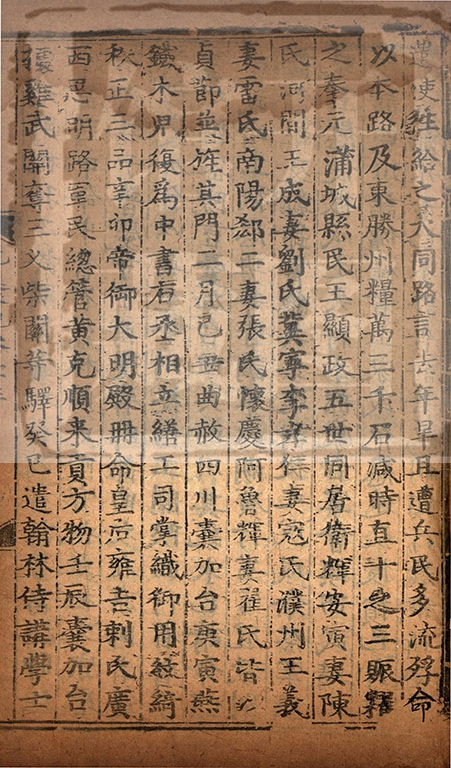 遣使往給之大同路言去年旱且遭兵民多流殍命
以本路及東勝州糧萬三千石減時直十之三賑糶
之奉元蒲城縣民王顯政五世同居衛輝安寅妻陳
氏河間王成妻劉氏冀寧李孝仁妻寇氏濮州王義
妻雷氏南陽郄二妻張氏懷慶阿魯輝妻翟氏皆以
貞節並旌其門二月己丑曲赦四川囊加台庚寅燕
鐵木兒復爲中書右丞相立繕工司掌織御用紋綺
秩正三品辛卯帝御大明殿冊命皇后雍吉剌氏廣
西思明路軍民總管黃克順來貢方物壬辰囊加台
據雞武關奪三叉柴關等驛癸巳遣翰林侍講學士